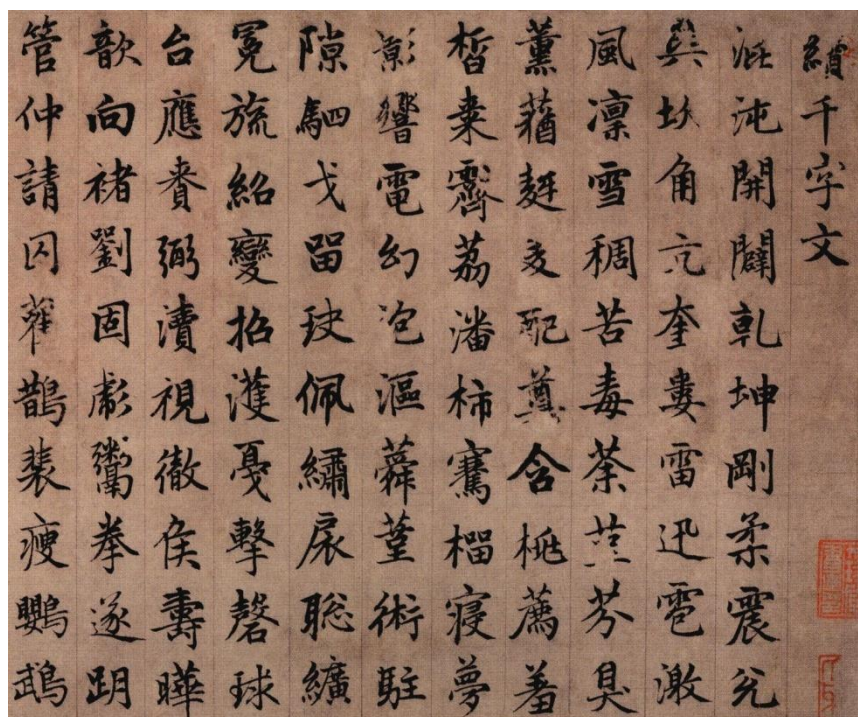 續千字文
混沌開闢乾坤剛柔震兌
巽坎角亢奎婁雷迅雹激
風凜雪稠苦毒荼芬臭
薰蕕麰麥配奠含桃薦羞
晳棗霽荔潘柿騫榴寢夢
影響電幻泡漚蕣堇術駐
隙駟戈留玦佩繡扆聡纊
冕旒紹變招濩戛擊磬球
台應賚弼瀆視徹侯壽曄
歆向褚劉固彪鬻拳遂跀
管仲請囚鵲裴瘦鸚鵡